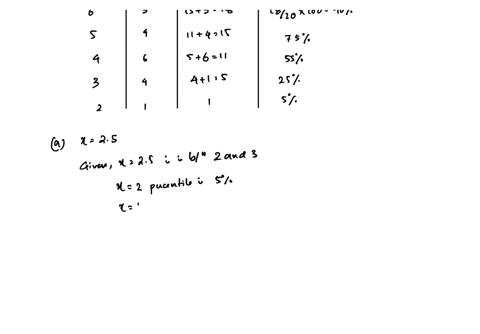 5 4 11+4=15 75%
4 6 5+6=11 55%
3 4 4+1=5 25%
2 1 1 5%
(a) x=2.5
Given, x=2.5 i i b/w 2 and 3
x=2 pucentile i 5%
x=